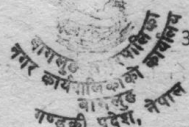 बागलुङ नगरपालिका
नगर कार्यपालिकाको कार्यालय
बागलुङ
गण्डकी प्रदेश, नेपाल